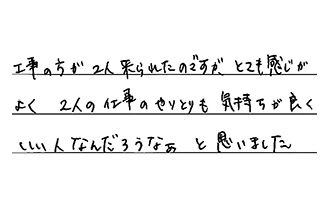 工事の方が2人来られたのですが、とても感じが
よく 2人の仕事のやりとりも 気持ちが良く
いい人なんだろうなぁ と思いました